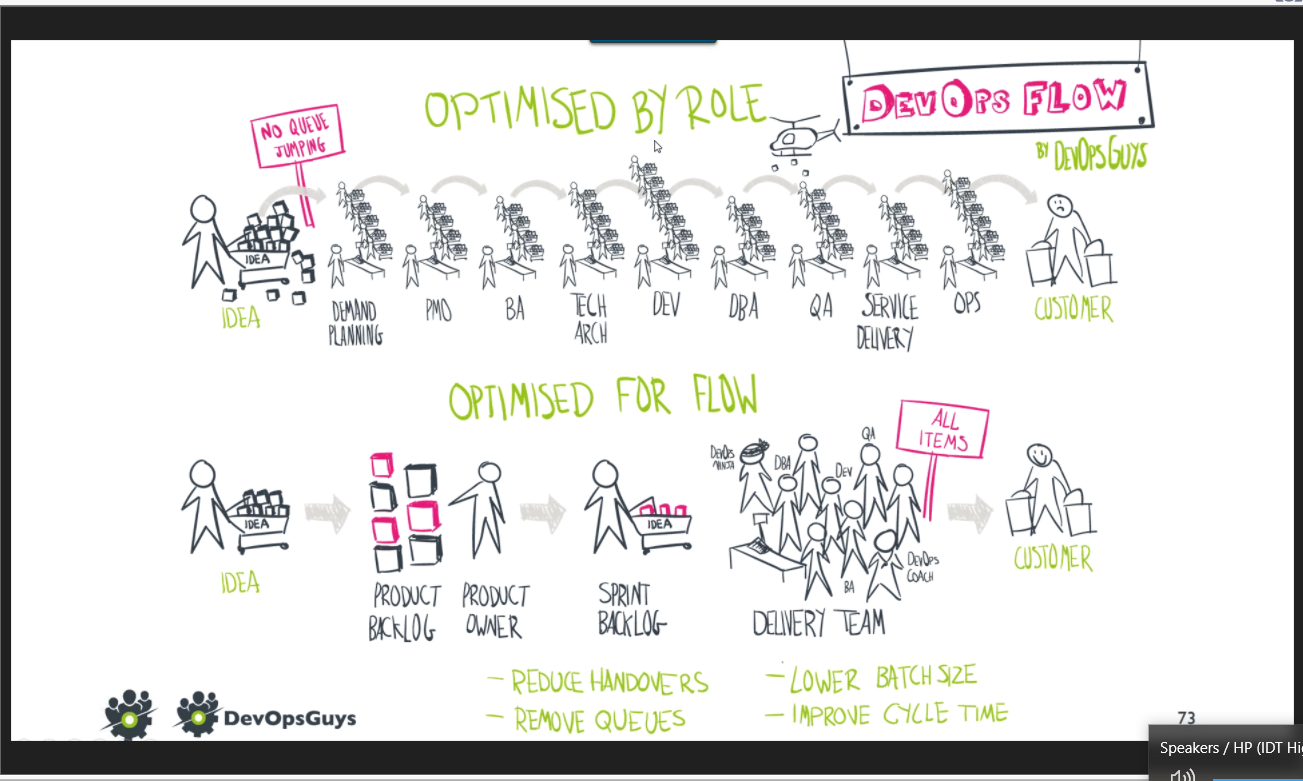 OPTIMISED BY ROLE
DEVOPS FLOW
BY DEVOPSGUYS
NO QUEUE
JUMPING
IDEA
IDEA
DEMAND
PLANNING
PMO
BA
TECH
ARCH
DEV
DBA
QA
SERVICE
DELIVERY
OPS
CUSTOMER
OPTIMISED FOR FLOW
ALL
ITEMS
IDEA
IDEA
PRODUCT
BACKLOG
PRODUCT
OWNER
IDEA
SPRINT
BACKLOG
DEVOPS
NINJA
DBA
DEV
QA
BA
DEVOPS
COACH
DELIVERY TEAM
CUSTOMER
– REDUCE HANDOVERS
– REMOVE QUEUES
– LOWER BATCH SIZE
– IMPROVE CYCLE TIME
DevOpsGuys
73
Speakers / HP (IDT Hi